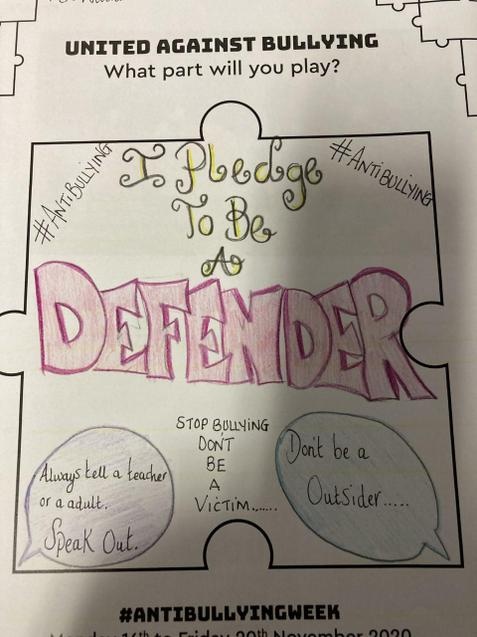 UNITED AGAINST BULLYING
What part will you play?
#ANTIBULLYING
#ANTIBULLYING
I Pledge
To Be
A
DEFENDER
STOP BULLYING
DON'T
BE
A
VICTIM......
Always tell a teacher
or a adult.
Speak Out.
Don't be a
Outsider.....
#ANTIBULLYINGWEEK
Monday 16th to Friday 20th November 2020